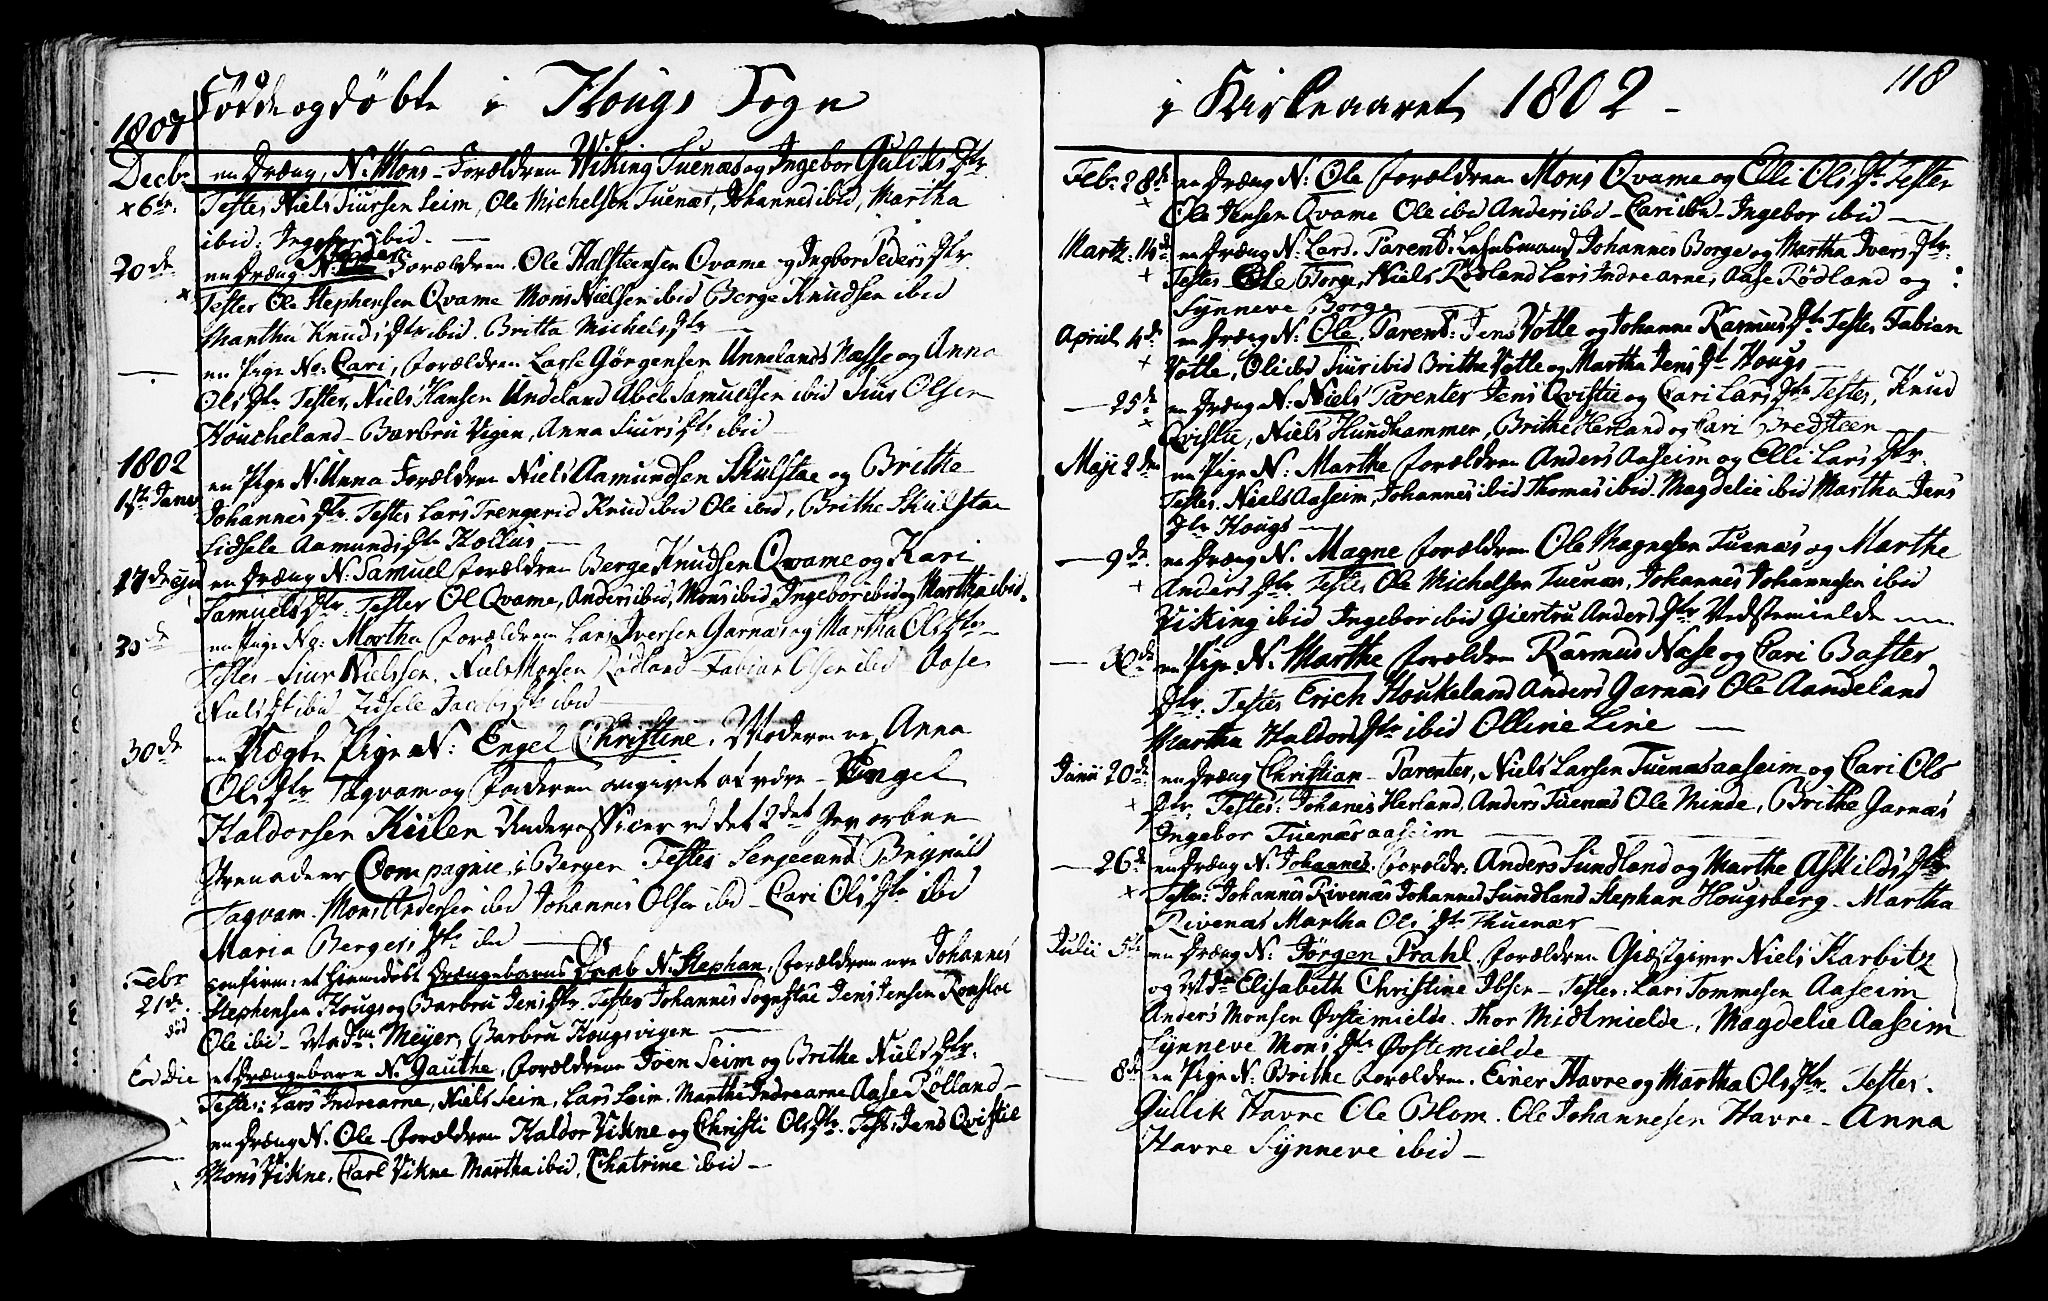 Fødde og døbte i Hougs Sogn
1801
Decbr en Dræng, N: Mons - Forældren Wiking Tuenæs og Ingebor Gulichs Dtr
x 6te Testes Niels Siursen Seim, Ole Michelsen Tuenæs, Johannes ibid, Martha
ibid: Ingebor ibid. —
Peder
20de en Dræng N: Forældren. Ole Halsteensen Qvame og Ingbor Peders Dtr
x Testes Ole Stephensen Qvame Mons Nielsen ibid Berge Knudsen ibid
Martha Knuds Dtr ibid. Britta Michels Dtr —
— en Pige No: Cari, Forældren Lasse Gørgensen Unnelands Næsse og Anna
Ols Dtr Testes, Niels Hansen Undeland Abel Samuelsen ibid Siur Olsen
Houcheland - Barbru Vigen, Anna Siurs Dtr ibid —
1802
1ste Janr en Pige N: Anna Forældren Niels Aamundsen Skulstae og Brithe
Johannes Dtr. Testes Lars Trengerid Knud ibid Ole ibid, Brithe Skulstae
Sidsele Aamunds Dtr Hollus —
17de ejusd en Dræng N: Samuel Forældren Berge Knudsen Qvame og Kari
Samuels Dtr. Testes Ol Qvame, Anders ibid, Mons ibid, Ingebor ibid og Martha ibid.
30de en Pige No: Martha Forældren Lars Iversen Garnæs og Martha Ols Dtr —
Testes - Siur Nielssen, Niels Monsen Rødland - Fabian Olsen ibid Aase
Niels Dt ibid Zidsele Jacobs Dtr ibid —
30de en Uægte Pige N: Engel Christine, Moderen er, Anna
Ols Dtr Taqvam og Faderen angivet at være - Engel
Haldorsen Kulen Underofficer ved det 2det Geworbne
Grenadeer Compagnie, i Bergen Testes Sergeand Brynild
Taqvam. Mons Andersen ibid Johannes Olsen ibid - Cari Ols Dtr ibid
Maria Berges Dtr ibd —
Febr confirm: et hiemdøbt Drængebarns Daab N. Stephan, Forældren ere Johannes
21de Stephensen Hougs og Barbru Jens Dtr. Testes Johannes Sognstae Jens Jensen Ronstae
død Ole ibid - Madm Meyer, Barbru Hougsvigen —
Eod die et Drængebarn N. Gauthe, Forældren Joen Seim og Brithe Niels Dtr.
Testes: Lars Indrearne, Niels Seim, Lars Seim. Marthe Indrearne Aase Rølland —
— en Dræng N. Ole - Forældren Haldor Vikne og Christi Ols Dtr. Test: Jens Qvistie
x Mons Vikne, Carl Vikne Martha ibid, Chatrine ibid —
i Kirkeaaret 1802 - 118
Febr 28de en Dræng N: Ole Forældren Mons Qvame og Elli Ols Dt. Testes
+ Ole Jensen Qvame Ole ibd Anders ibid - Cari ibd - Ingebor ibid —
Martz: 14de en Dræng N: Lars. Parent: Lehnsmand Johannes Borge og Martha Ivers Dtr.
+ Testes Ole Borge, Niels Rødland Lars Indrearne, Aase Rødland og
Synneve Borge —
April 4de en Dræng N: Ole, Parent: Jens Votle og Johanne Rasmus Dtr Testes Fabian
+ Votle, Ol ibd Siur ibid Brithe Votle og Martha Jens Dt Hougs
— 25de en Dræng N: Niels Parentes Jens Qvistie og Cari Lars Dtr Testes, Knud
x Qvistie, Niels Hundhammer, Brithe Herland og Cari Bredsteen
Maji 2den en Pige N: Marthe Forældren Anders Aaseim og Elli Lars Dtr.
Testes. Niels Aaseim, Johannes ibid Thomas ibid. Magdelie ibid Martha Jens
Dtr Hougs —
— 9de en Dræng N. Magne Forældren Ole Magnesen Tuenæs og Marthe
+ Anders Dtr. Testes Ole Michelsen Tuenæs, Johannes Johannesen ibid
Viking ibid Ingebor ibid Giertru Anders Dtr Vedstemielde —
— 30de en Pige N. Marthe Forældren Rasmus Næse og Cari Baster
Dtr. Testes Erich Houkeland Anders Garnæs Ole Aandeland
Martha Haldors Dtr ibid Olline Line —
Junii 20de en Dræng Christian - Parentes, Niels Larsen Tuenæsaaseim og Cari Ols
+ Dtr. Testes: Johanes Herland. Anders Tuenæs Ole Minde, Brithe Garnæs
Ingebor Tuenæsaaseim —
— 26de en Dræng N. Johannes, Forældr: Anders Sundland og Marthe Askilds Dtr
+ Testes: Johannes Rivenæs Johannes Sundland Stephan Hougsberg - Martha
Rivenæs Martha Ols Dtr Thuenæs —
Julii 5te en Dræng N: Jørgen Prahl. Forældren Giæstgiver Niels Karbitz
og Mde Elisabeth Christine Ibsen - Testes: Lars Tommesen Aaseim
Anders Monsen Øvstemielde. Thor Midtmielde, Magdelie Aaseim
Synneve Mons Dtr Øvstemielde
— 8de en Pige N: Brithe Forældren. Einer Havre og Martha Ols Dtr. Testes.
Gullik Havre Ole Blom. Ole Johannesen Havre - Anna
Havre Synneve ibid —